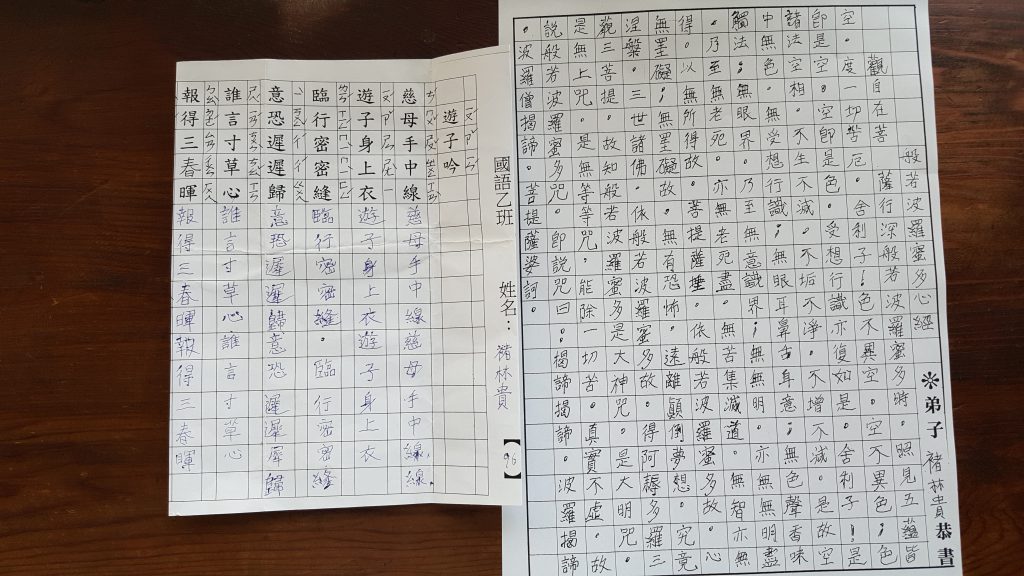 般若波羅蜜多心經 ※弟子 褚林貴 恭書
觀自在菩薩行深般若波羅蜜多時。照見五蘊皆
空。度一切苦厄。舍利子!色不異空。空不異色;色
即是空。空即是色。受想行識亦復如是。舍利子!是
諸法空相。不生不滅。不垢不淨。不增不減。是故空
中無色。無受想行識;無眼耳鼻舌身意;無色聲香味
觸法;無眼界。乃至無意識界;無無明。亦無無明盡
。乃至無老死。亦無老死盡。無苦集滅道。無智亦無
得。以無所得故。菩提薩埵。依般若波羅蜜多故。心
無罣礙;無罣礙故。無有恐怖。遠離顛倒夢想。究竟
涅槃。三世諸佛。依般若波羅蜜多故。得阿耨多羅三
藐三菩提。故知般若波羅蜜多是大神咒。是大明咒。
是無上咒。是無等等咒。能除一切苦。真實不虛。故
說般若波羅蜜多咒。即說咒曰:揭諦揭諦。波羅揭諦
。波羅僧揭諦。菩提薩婆訶。
國語乙班 姓名:褚林貴【96】
遊子吟
慈母手中線慈母手中線慈母手中線.
遊子身上衣遊子身上衣遊子身上衣
臨行密密縫臨行密密縫。臨行密密縫
意恐遲遲歸意恐遲遲歸意恐遲遲歸
誰言寸草心誰言寸草心誰言寸草心
報得三春暉報得三春暉報得三春暉